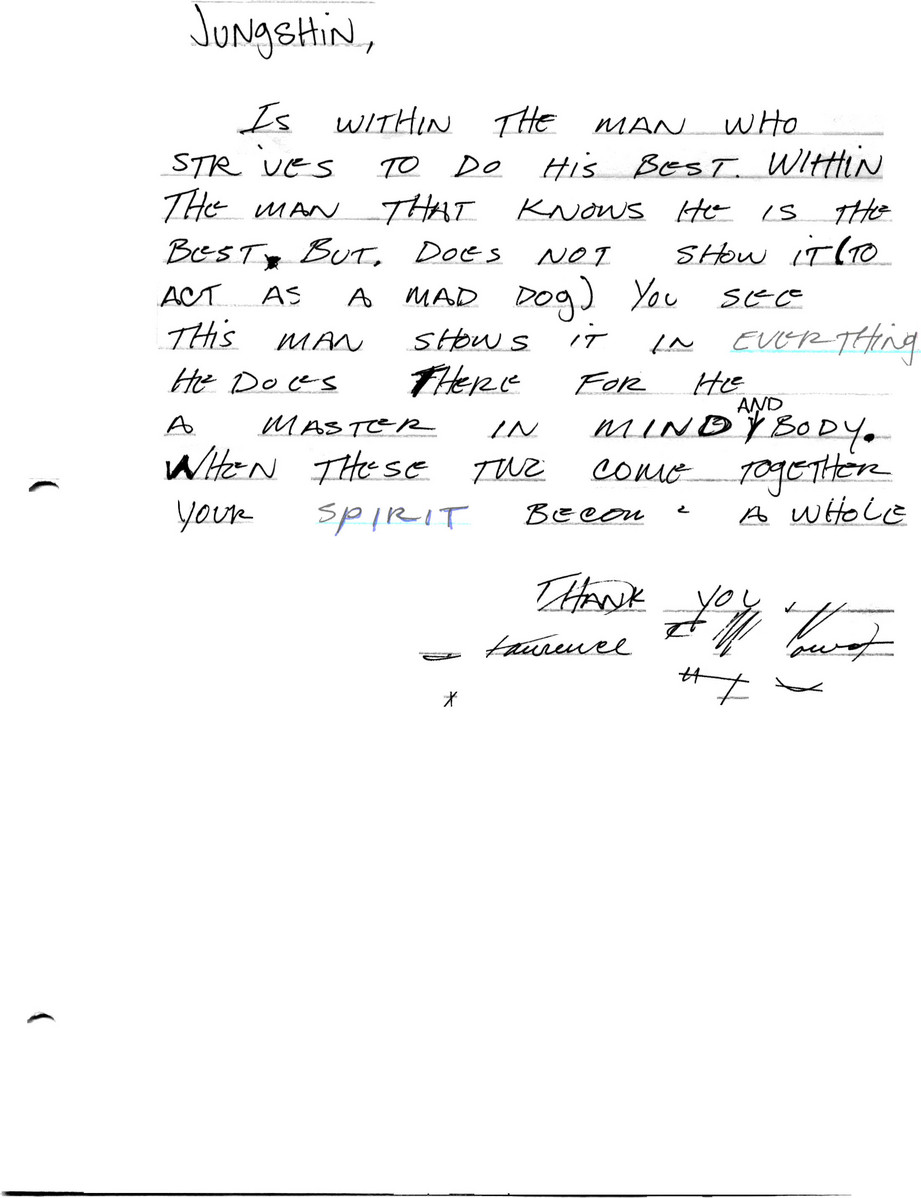 JUNGSHiN,
IS WITHIN THE MAN WHO
STRIVES TO DO HiS BEST. WITHIN
THE MAN THAT KNOWS HE IS THE
BEST, BUT, DOES NOT SHOW iT (TO
ACT AS A MAD DOg) YOU SEE
THiS MAN SHOWS iT IN EVERTHing
HE DOES THERE FOR HE
A MASTER IN MIND AND BODY.
WHEN THESE TWO COME TOgETHER
YOUR SPIRIT BECOM A WHOLE
THANK YOU
Laurence
*